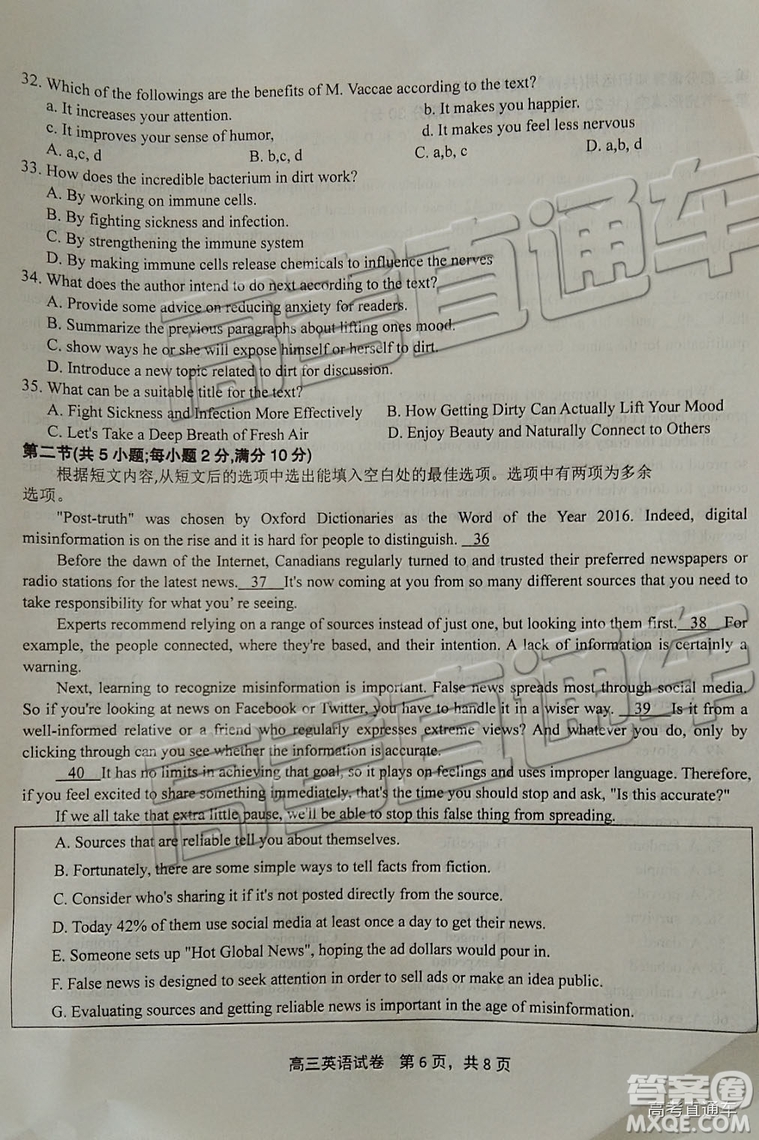 32. Which of the followings are the benefits of M. Vaccae according to the text?
a. It increases your attention. b. It makes you happier.
c. It improves your sense of humor, d. It makes you feel less nervous
A. a,c, d B. b,c, d C. a,b, c D. a, b, d
33. How does the incredible bacterium in dirt work?
A. By working on immune cells.
B. By fighting sickness and infection.
C. By strengthening the immune system
D. By making immune cells release chemicals to influence the nerves
34. What does the author intend to do next according to the text?
A. Provide some advice on reducing anxiety for readers.
B. Summarize the previous paragraphs about lifting ones mood.
C. show ways he or she will expose himself or herself to dirt.
D. Introduce a new topic related to dirt for discussion.
35. What can be a suitable title for the text?
A. Fight Sickness and Infection More Effectively B. How Getting Dirty Can Actually Lift Your Mood
C. Let's Take a Deep Breath of Fresh Air D. Enjoy Beauty and Naturally Connect to Others
第二节(共 5 小题;每小题 2 分,满分 10 分)
根据短文内容,从短文后的选项中选出能填入空白处的最佳选项。选项中有两项为多余
选项。
"Post-truth" was chosen by Oxford Dictionaries as the Word of the Year 2016. Indeed, digital
misinformation is on the rise and it is hard for people to distinguish. 36
Before the dawn of the Internet, Canadians regularly turned to and trusted their preferred newspapers or
radio stations for the latest news. 37 It's now coming at you from so many different sources that you need to
take responsibility for what you're seeing.
Experts recommend relying on a range of sources instead of just one, but looking into them first. 38 For
example, the people connected, where they're based, and their intention. A lack of information is certainly a
warning.
Next, learning to recognize misinformation is important. False news spreads most through social media.
So if you're looking at news on Facebook or Twitter, you have to handle it in a wiser way. 39 Is it from a
well-informed relative or a friend who regularly expresses extreme views? And whatever you do, only by
clicking through can you see whether the information is accurate.
40 It has no limits in achieving that goal, so it plays on feelings and uses improper language. Therefore,
if you feel excited to share something immediately, that's the time you should stop and ask, "Is this accurate?"
If we all take that extra little pause, we'll be able to stop this false thing from spreading.
A. Sources that are reliable tell you about themselves.
B. Fortunately, there are some simple ways to tell facts from fiction.
C. Consider who's sharing it if it's not posted directly from the source.
D. Today 42% of them use social media at least once a day to get their news.
E. Someone sets up "Hot Global News", hoping the ad dollars would pour in.
F. False news is designed to seek attention in order to sell ads or make an idea public.
G. Evaluating sources and getting reliable news is important in the age of misinformation.
高三英语试卷 第 6 页，共 8 页
高考直通车
高考直通车
答案圈
高考直通车
MXQE.COM